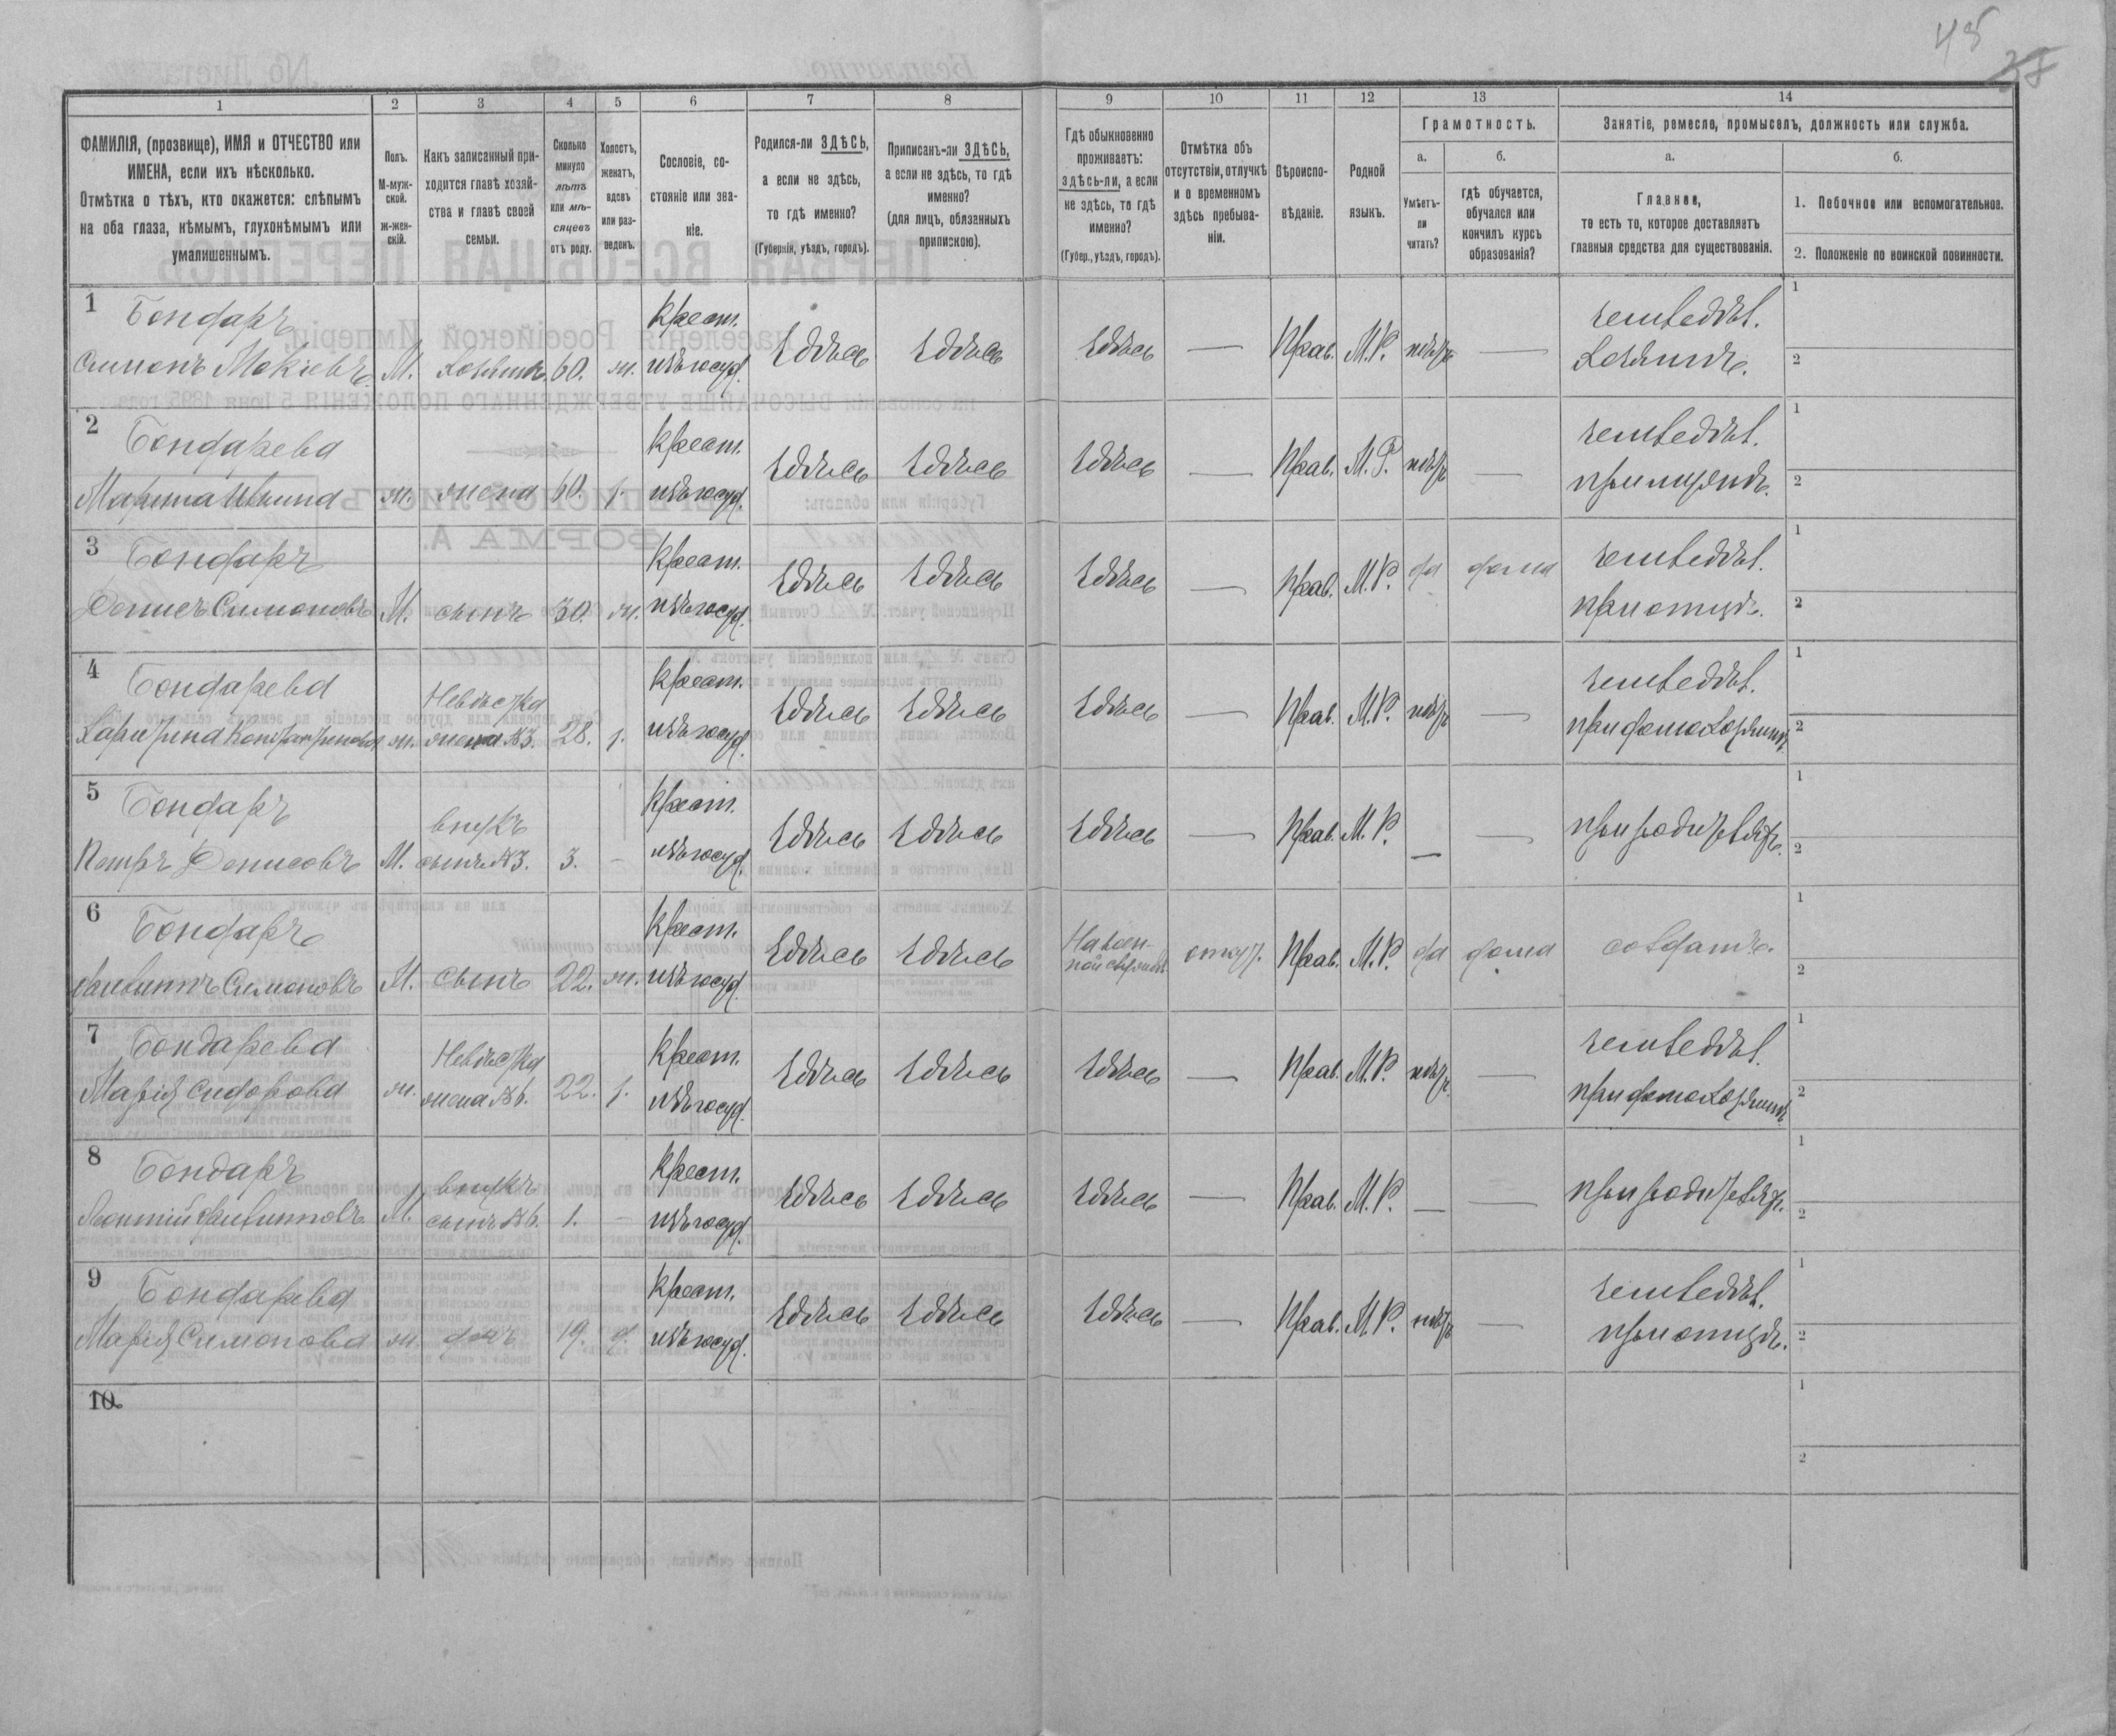 48
38
1 2 3 4 5 6 7 8 9 10 11 12 13 14
ФАМИЛІЯ, (прозвище), ИМЯ и ОТЧЕСТВО или ИМЕНА, если ихъ нѣсколько.
Отмѣтка о тѣхъ, кто окажется: слѣпымъ на оба глаза, нѣмымъ, глухонѣмымъ или умалишеннымъ.
Полъ.
М-мужской.
Ж-женскій.
Какъ записанный приходится главѣ хозяйства и главѣ своей семьи.
Сколько минуло лѣтъ или мѣсяцевъ отъ роду.
Холостъ, женатъ, вдовъ или разведенъ.
Сословіе, состояніе или званіе.
Родился-ли ЗДѢСЬ, а если не здѣсь, то гдѣ именно?
(Губернія, уѣздъ, городъ).
Приписанъ-ли ЗДѢСЬ, а если не здѣсь, то гдѣ именно?
(для лицъ, обязанныхъ припискою).
Гдѣ обыкновенно проживаетъ: здѣсь-ли, а если не здѣсь, то гдѣ именно?
(Губер., уѣздъ, городъ).
Отмѣтка объ отсутствіи, отлучкѣ и о временномъ здѣсь пребываніи.
Вѣроисповѣданіе.
Родной языкъ.
Грамотность.
а.
Умѣетъ-ли читать?
б.
гдѣ обучается, обучался или кончилъ курсъ образованія?
Занятіе, ремесло, промыселъ, должность или служба.
а.
Главное,
то есть то, которое доставляетъ главныя средства для существованія.
б.
1. Побочное или вспомогательное.
2. Положеніе по воинской повинности.
1 Бондаръ Крест. земледѣл. 1
Симонъ Мокіевъ М. хозяинъ 60. ж. изъ госуд. здѣсь здѣсь здѣсь — Прав. М.Р. нѣтъ — хозяинъ. 2
2 Бондарева Крест. земледѣл. 1
Марина ж. жена 60. з. изъ госуд. здѣсь здѣсь здѣсь — Прав. М.Р. нѣтъ — 2
3 Бондаръ Крест. земледѣл. 1
Денисъ Симоновъ М. сынъ 30. ж. изъ госуд. здѣсь здѣсь здѣсь — Прав. М.Р. да дома при отцѣ. 2
4 Бондарева Невѣстка Крест. земледѣл. 1
Харитина Константинова ж. жена №3. 28. з. изъ госуд. здѣсь здѣсь здѣсь — Прав. М.Р. нѣтъ — при домохозяинѣ 2
5 Бондаръ внукъ Крест. 1
Петръ Денисовъ М. сынъ №3. 3. — изъ госуд. здѣсь здѣсь здѣсь — Прав. М.Р. — — при родителяхъ. 2
6 Бондаръ Крест. На воен- 1
Симоновъ М. сынъ 22. ж. изъ госуд. здѣсь здѣсь ной службѣ отсут. Прав. М.Р. да дома солдатъ. 2
7 Бондарева Невѣстка Крест. земледѣл. 1
Марія Сидорова ж. жена №6. 22. з. изъ госуд. здѣсь здѣсь здѣсь — Прав. М.Р. нѣтъ — при домохозяинѣ 2
8 Бондаръ внукъ Крест. 1
Леонтій М. сынъ №6. 1. — изъ госуд. здѣсь здѣсь здѣсь — Прав. М.Р. — — при родителяхъ. 2
9 Бондарева Крест. земледѣл. 1
Марія Симонова ж. дочь 19. д. изъ госуд. здѣсь здѣсь здѣсь — Прав. М.Р. нѣтъ — при отцѣ. 2
10 1
2